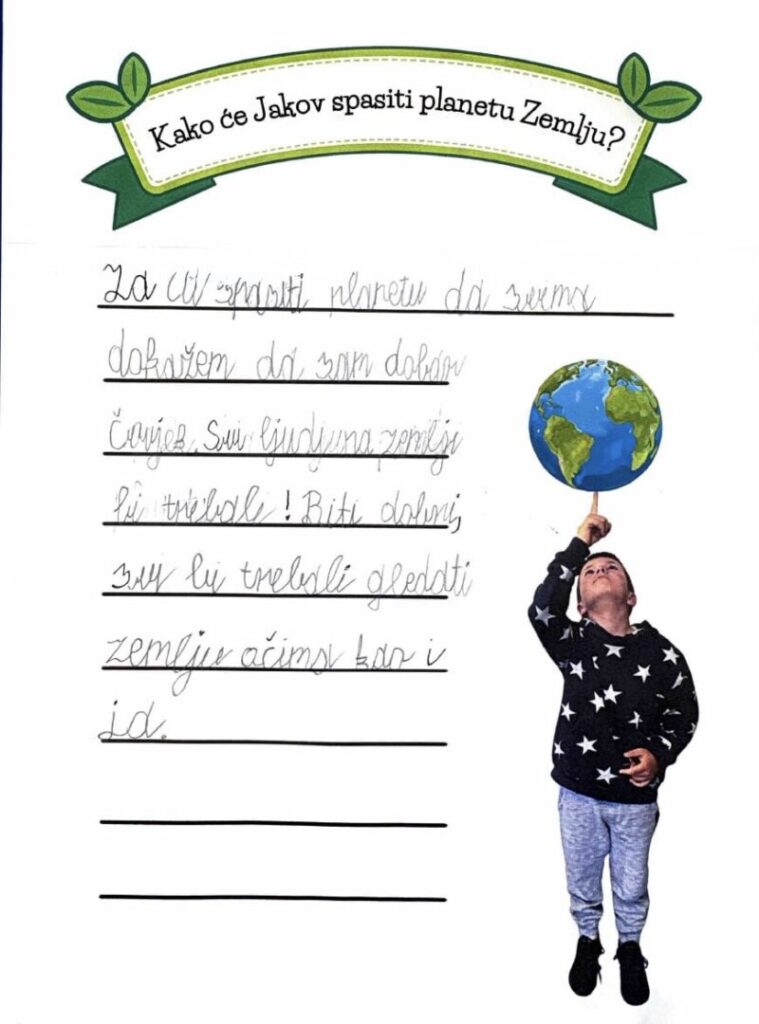 Kako će Jakov spasiti planetu Zemlju?
Ja ću spasiti planetu da svima
dokažem da sam dobar
čovjek. Svi ljudi na zemlji
bi trebali! Biti dobri,
svi bi trebali gledati
zemlju očima kao i
ja.